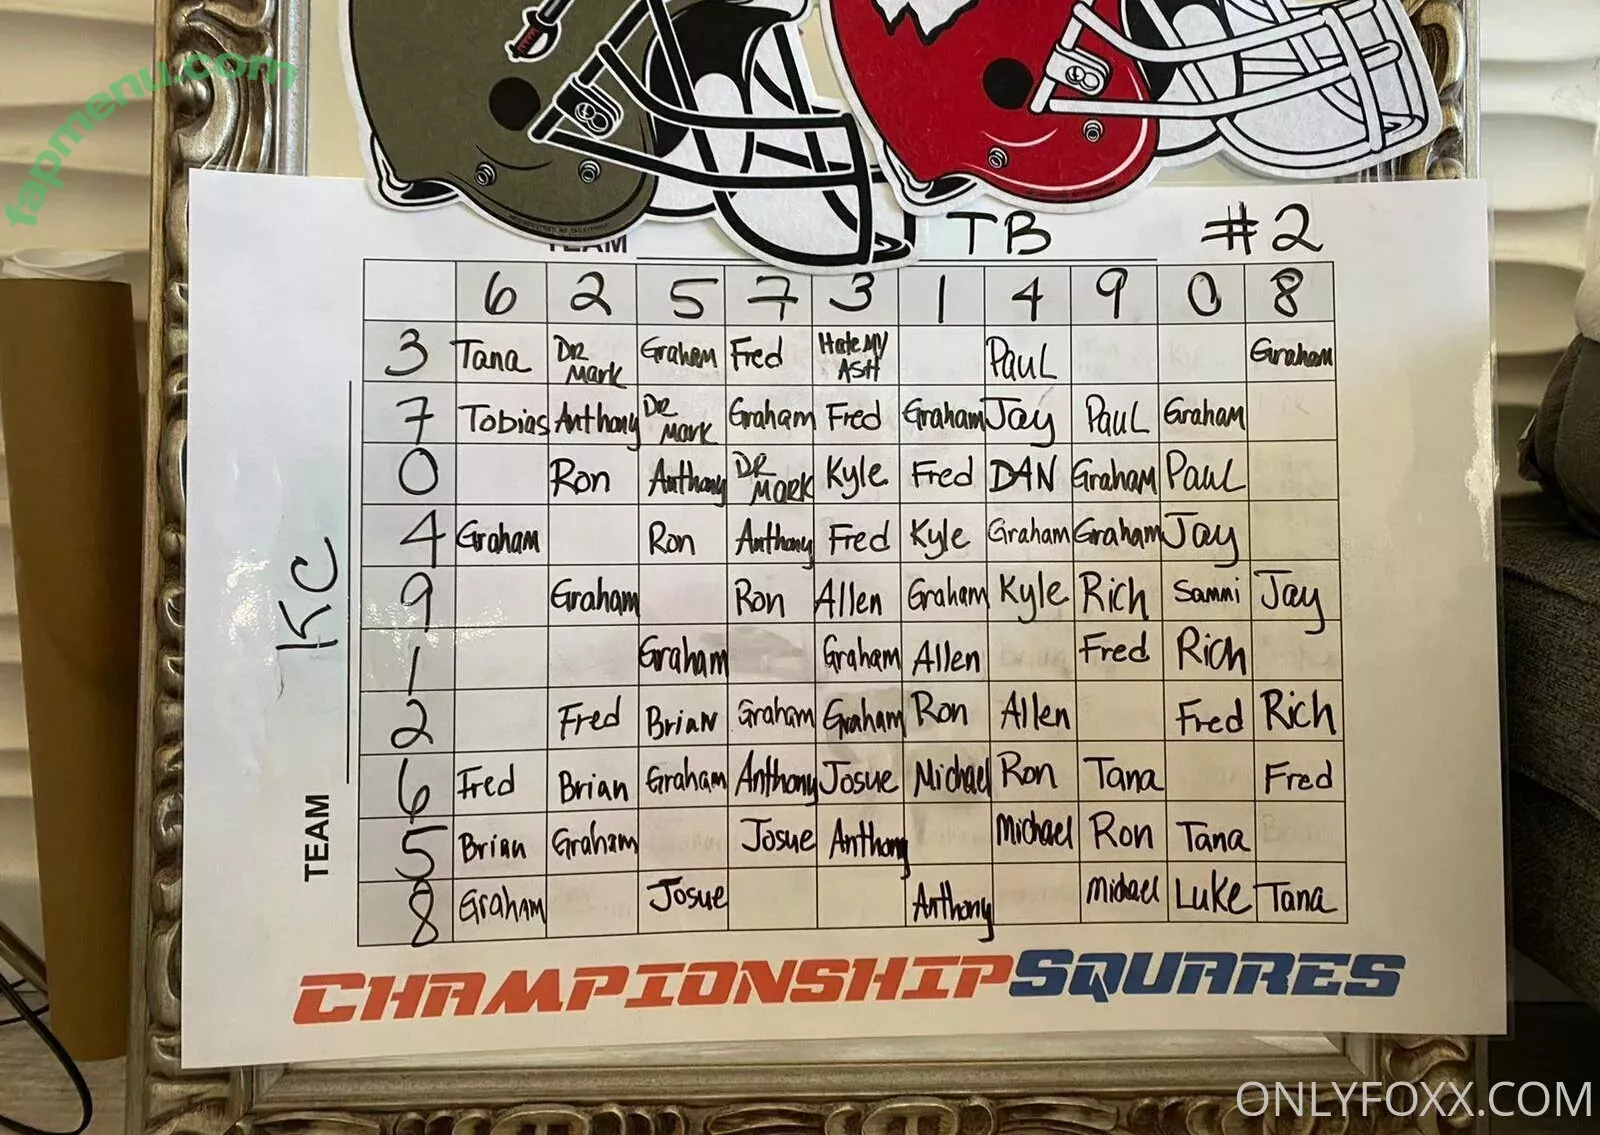 fapmenu.com
TEAM TB #2
6 2 5 7 3 1 4 9 0 8
3 Tana DR MARK Graham Fred Hate My ASH PAUL Graham
7 Tobias Anthony DR MARK Graham Fred Graham Jay PAUL Graham
0 Ron Anthony DR MARK Kyle Fred DAN Graham PAUL
4 Graham Ron Anthony Fred Kyle Graham Graham Jay
9 Graham Ron Allen Graham Kyle Rich Sammi Jay
1 Graham Graham Allen Fred Rich
2 Fred Brian Graham Graham Ron Allen Fred Rich
6 Fred Brian Graham Anthony Josue Michael Ron Tana Fred
5 Brian Graham Josue Anthony Michael Ron Tana
8 Graham Josue Anthony Michael Luke Tana
TEAM KC
CHAMPIONSHIPSQUARES
ONLYFOXX.COM